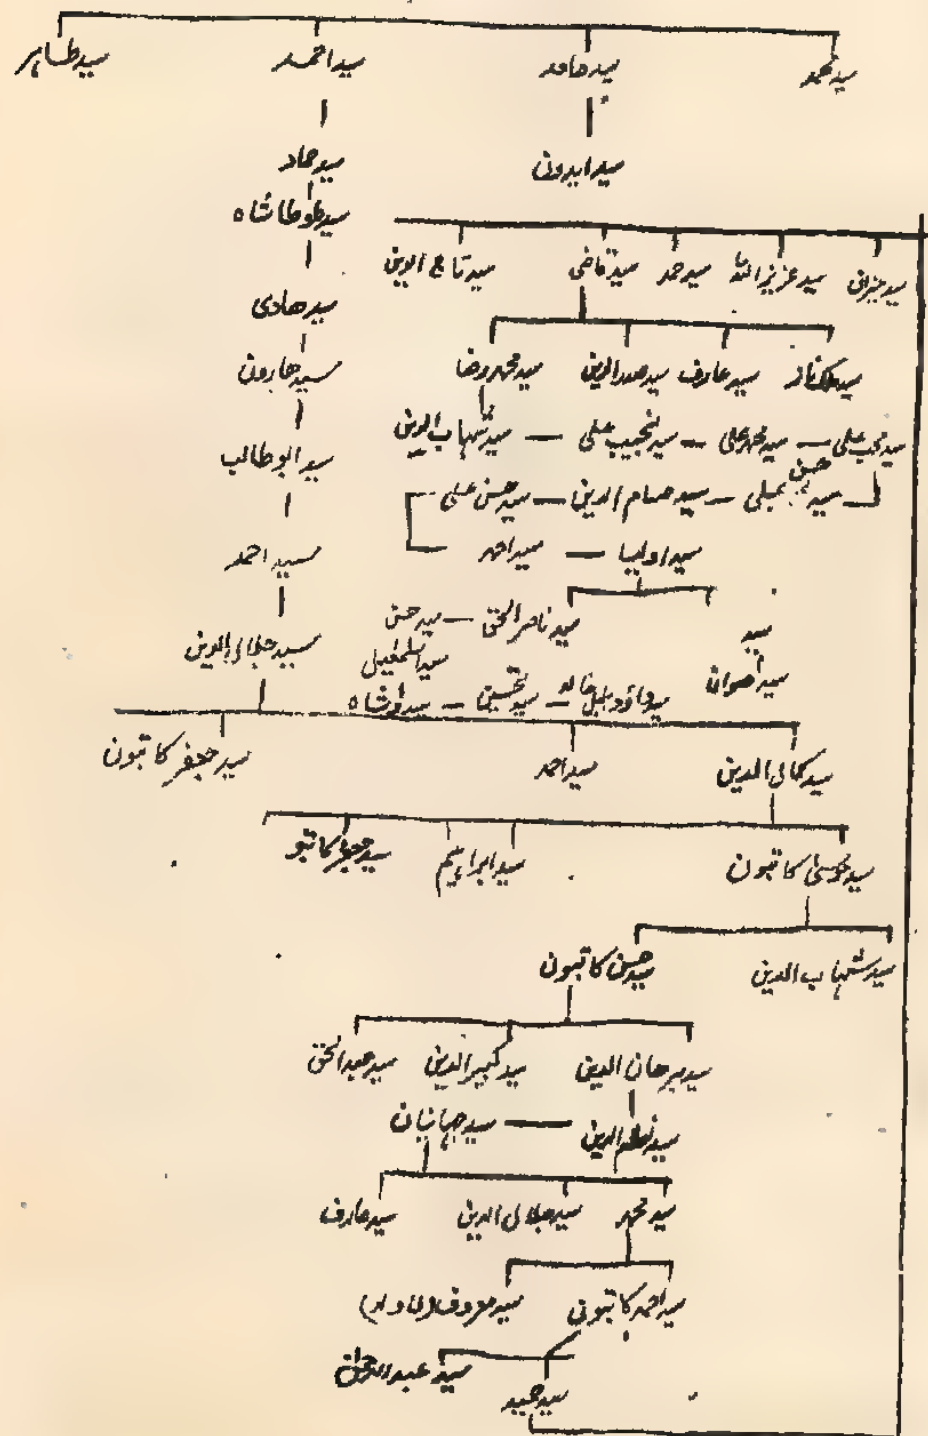 سید محمد سید حامد سید احمد سید طاہر
سید ابدون سید حماد
سید طوطا شاہ
سید عزیز اللہ سید حمد سید قاضی سید تاج الدین
سید ھادی
سید عارف سید صدر الدین سید محمد رضا
سید ھارون
سید محب علی — سید محمد علی — سید نجیب علی — سید شہاب الدین
سید ابو طالب
سید حسن — سید حسام الدین — سید حسن علی
سید اولیا — سید احمد
سید احمد
سید ناصر الحق — سید حسن
سید جلال الدین
سید
سید اسمٰعیل
سید اصوان
سید داؤد
سید کمال الدین سید احمد سید جعفر کاتبون
سید موسیٰ کاتبون سید ابراہیم سید جعفر کاتبو
سید شہاب الدین سید حسن کاتبون
سید برھان الدین سید کبیر الدین سید عبد الحق
سید نظام الدین — سید جہانیان
سید محمد سید جلال الدین سید عارف
سید احمد کاتبون سید معروف
سید عبد الرحمٰن
سید حمید